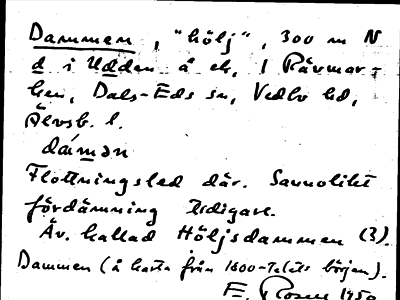 Dammen, "hölj", 300 m N
d i Udden å ek, 1 Rävmar-
ken, Dals-Eds sn, Vedbo hd,
Älvsb. l.
dámən
Flottningsled där. Sannolikt
fördämning tidigare.
Äv. kallad Höljsdammen (3).
Dammen (å karta från 1600-talets början).
E. Rosen 1950